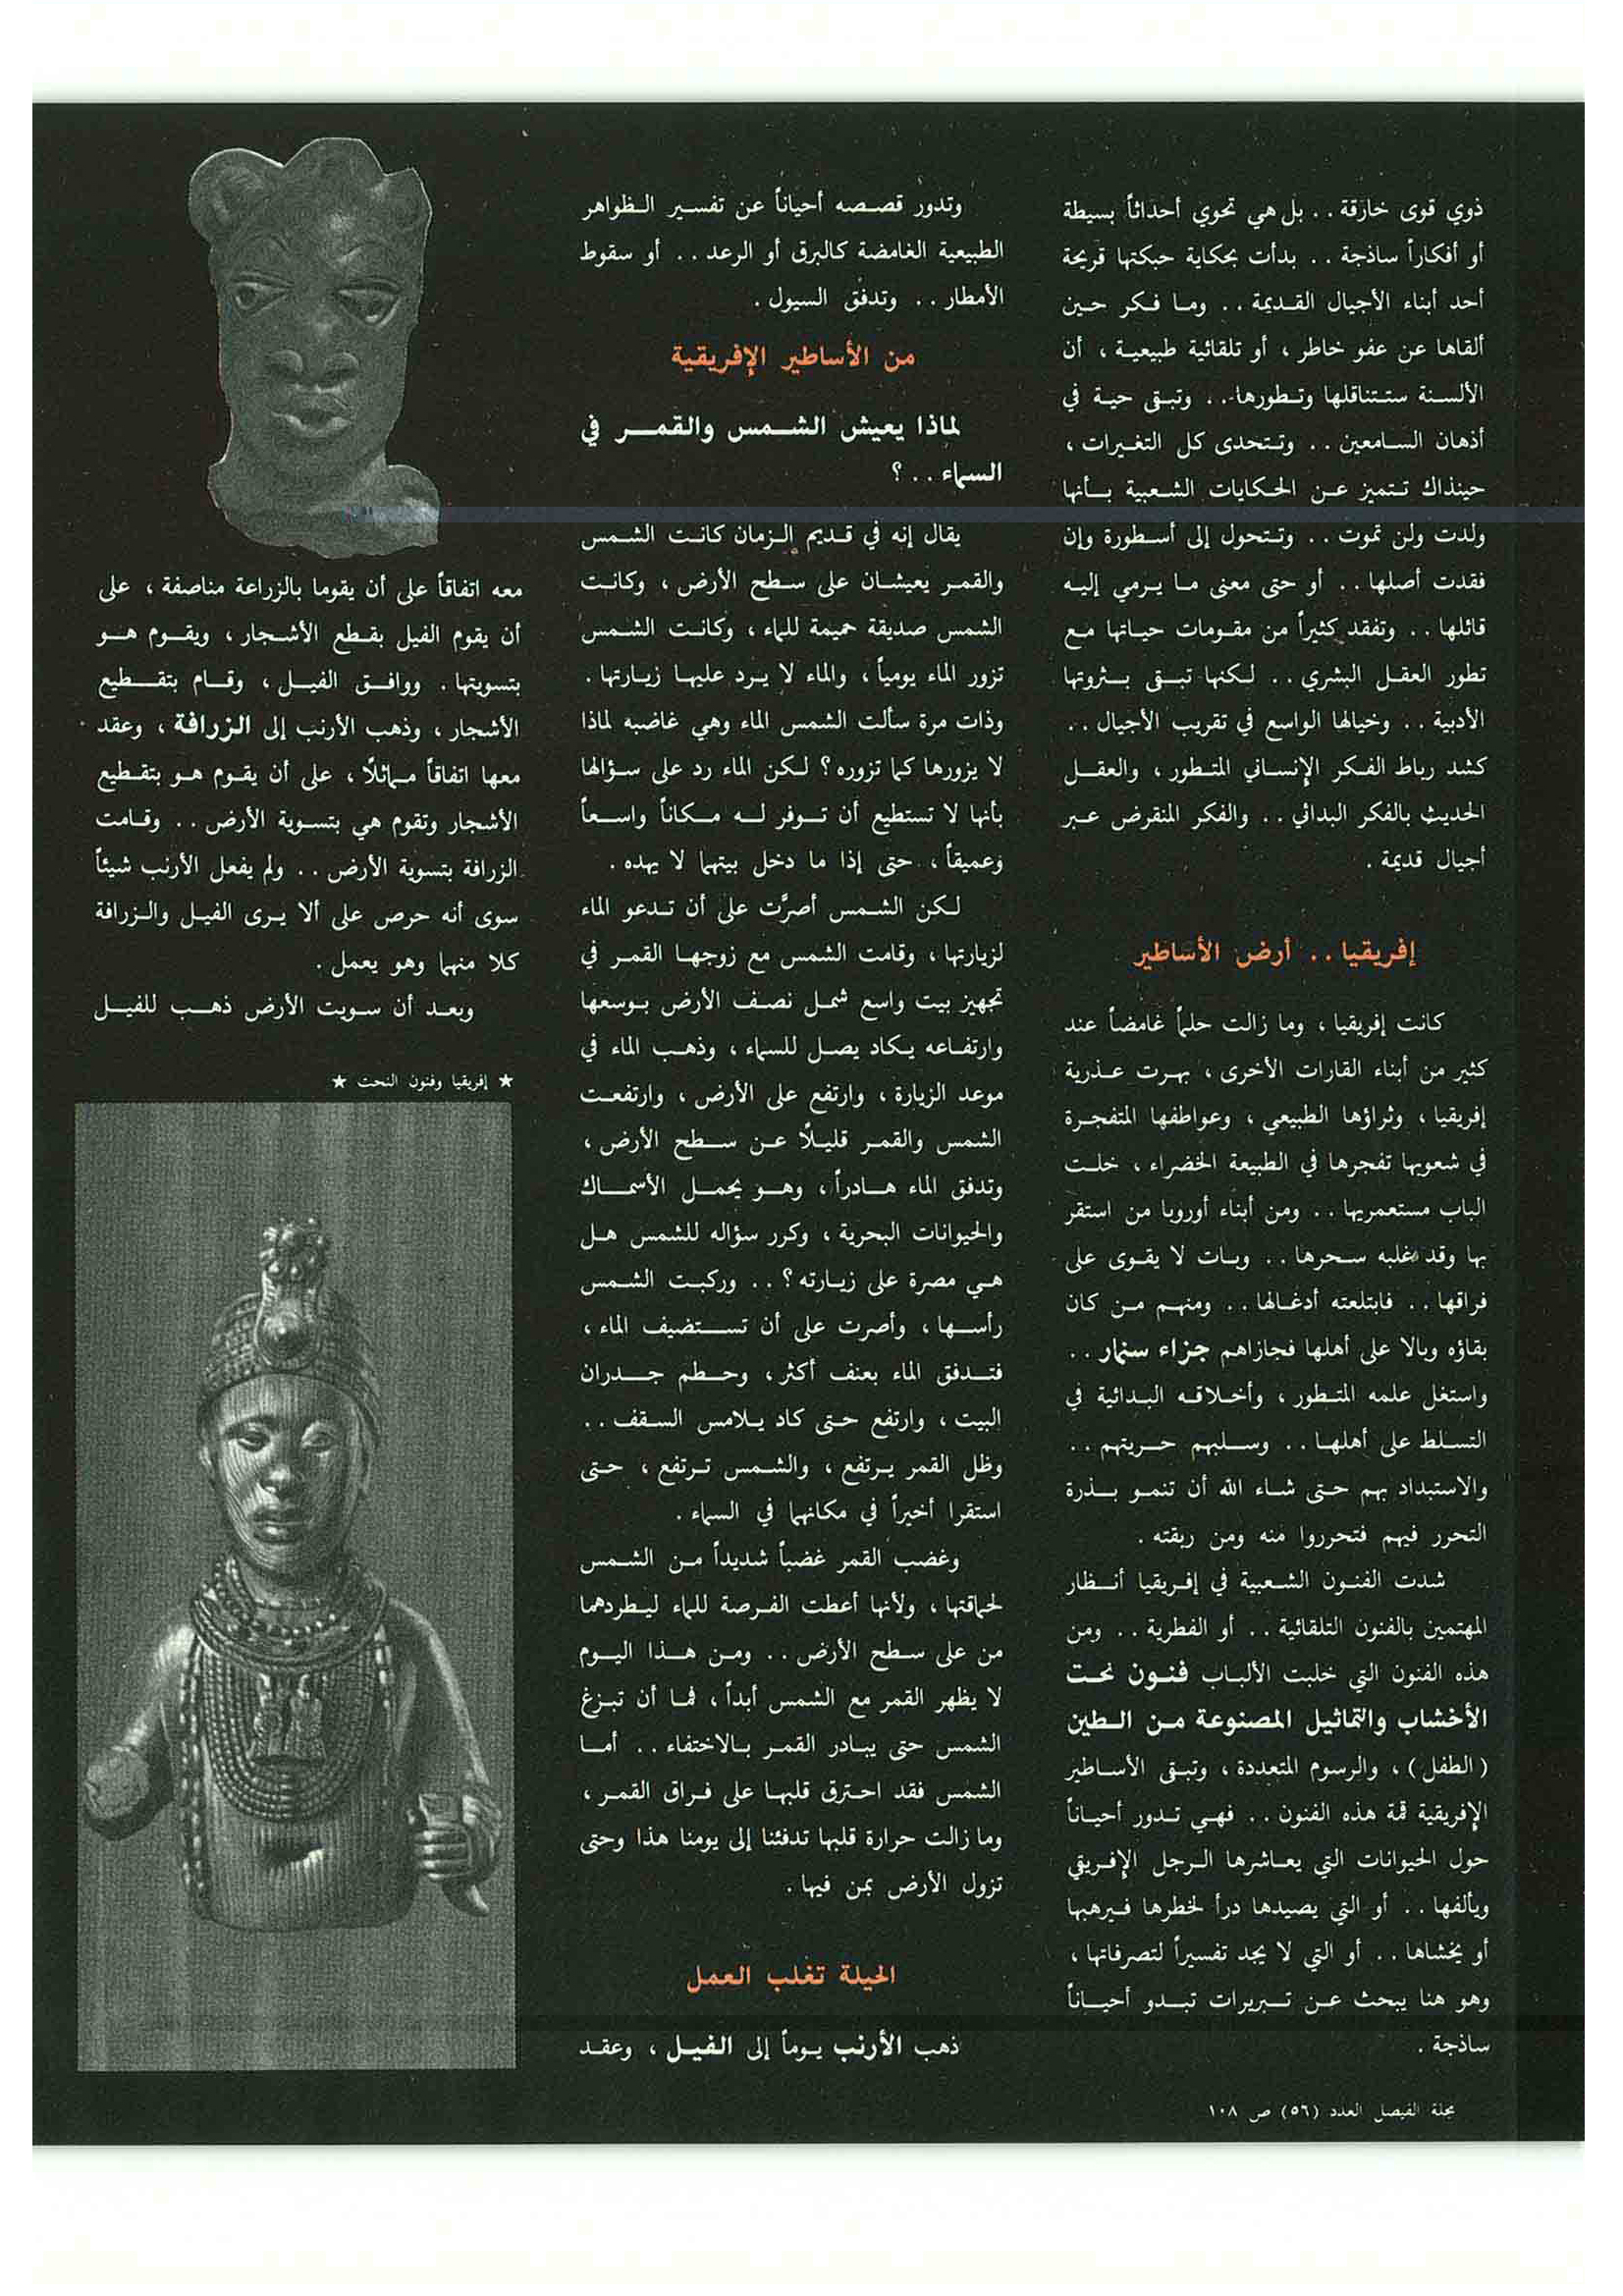 ذوي قوى خارقة . . بل هي تحوي أحداثاً بسيطة
أو أفكاراً ساذجة . . بدأت بحكاية حبكتها قريحة
أحد أبناء الأجيال القديمة . . وما فكر حين
ألقاها عن عفو خاطر ، أو تلقائية طبيعية ، أن
الألسنة ستتناقلها وتطورها . . وتبقى حية في
أذهان السامعين . . وتتحدى كل التغيرات ،
حينذاك تتميز عن الحكايات الشعبية بأنها
ولدت ولن تموت . . وتتحول إلى أسطورة وإن
فقدت أصلها . . أو حتى معنى ما يرمي إليه
قائلها . . وتفقد كثيراً من مقومات حياتها مع
تطور العقل البشري . . لكنها تبقى بثروتها
الأدبية . . وخيالها الواسع في تقريب الأجيال . .
كشد رباط الفكر الإنساني المتطور ، والعقل
الحديث بالفكر البدائي . . والفكر المنقرض عبر
أجيال قديمة .
إفريقيا . . أرض الأساطير
كانت إفريقيا ، وما زالت حلماً غامضاً عند
كثير من أبناء القارات الأخرى ، بهرت عذرية
إفريقيا ، وثراؤها الطبيعي ، وعواطفها المتفجرة
في شعوبها تفجرها في الطبيعة الخضراء ، خلت
الباب مستعمريها . . ومن أبناء أوروبا من استقر
بها وقد غلبه سحرها . . وبات لا يقوى على
فراقها . . فابتلعته أدغالها . . ومنهم من كان
بقاؤه وبالا على أهلها فجازاهم جزاء سنمار . .
واستغل علمه المتطور ، وأخلاقه البدائية في
التسلط على أهلها . . وسلبهم حريتهم . .
والاستبداد بهم حتى شاء الله أن تنمو بذرة
التحرر فيهم فتحرروا منه ومن ربقته .
شدت الفنون الشعبية في إفريقيا أنظار
المهتمين بالفنون التلقائية . . أو الفطرية . . ومن
هذه الفنون التي خلبت الألباب فنون نحت
الأخشاب والتماثيل المصنوعة من الطين
( الطفل ) ، والرسوم المتعددة ، وتبقى الأساطير
الإفريقية قمة هذه الفنون . . فهي تدور أحياناً
حول الحيوانات التي يعاشرها الرجل الإفريقي
ويألفها . . أو التي يصيدها درأ لخطرها فيرهبها
أو يخشاها . . أو التي لا يجد تفسيراً لتصرفاتها ،
وهو هنا يبحث عن تبريرات تبدو أحياناً
ساذجة .
وتدور قصصه أحياناً عن تفسير الظواهر
الطبيعية الغامضة كالبرق أو الرعد . . أو سقوط
الأمطار . . وتدفق السيول .
من الأساطير الإفريقية
لماذا يعيش الشمس والقمر في
السماء . . ؟
يقال إنه في قديم الزمان كانت الشمس
والقمر يعيشان على سطح الأرض ، وكانت
الشمس صديقة حميمة للماء ، وكانت الشمس
تزور الماء يومياً ، والماء لا يرد عليها زيارتها .
وذات مرة سألت الشمس الماء وهي غاضبه لماذا
لا يزورها كما تزوره ؟ لكن الماء رد على سؤالها
بأنها لا تستطيع أن توفر له مكاناً واسعاً
وعميقاً ، حتى إذا ما دخل بيتهما لا يهده .
لكن الشمس أصرَّت على أن تدعو الماء
لزيارتها ، وقامت الشمس مع زوجها القمر في
تجهيز بيت واسع شمل نصف الأرض بوسعها
وارتفاعه يكاد يصل للسماء ، وذهب الماء في
موعد الزيارة ، وارتفع على الأرض ، وارتفعت
الشمس والقمر قليلاً عن سطح الأرض ،
وتدفق الماء هادراً ، وهو يحمل الأسماك
والحيوانات البحرية ، وكرر سؤاله للشمس هل
هي مصرة على زيارته ؟ . . وركبت الشمس
رأسها ، وأصرت على أن تستضيف الماء ،
فتدفق الماء بعنف أكثر ، وحطم جدران
البيت ، وارتفع حتى كاد يلامس السقف . .
وظل القمر يرتفع ، والشمس ترتفع ، حتى
استقرا أخيراً في مكانهما في السماء .
وغضب القمر غضباً شديداً من الشمس
لحماقتها ، ولأنها أعطت الفرصة للماء ليطردهما
من على سطح الأرض . . ومن هذا اليوم
لا يظهر القمر مع الشمس أبداً ، فما أن تبزغ
الشمس حتى يبادر القمر بالاختفاء . . أما
الشمس فقد احترق قلبها على فراق القمر ،
وما زالت حرارة قلبها تدفئنا إلى يومنا هذا وحتى
تزول الأرض بمن فيها .
الحيلة تغلب العمل
ذهب الأرنب يوماً إلى الفيل ، وعقد
معه اتفاقاً على أن يقوما بالزراعة مناصفة ، على
أن يقوم الفيل بقطع الأشجار ، ويقوم هو
بتسويتها . ووافق الفيل ، وقام بتقطيع
الأشجار ، وذهب الأرنب إلى الزرافة ، وعقد
معها اتفاقاً مماثلاً ، على أن يقوم هو بتقطيع
الأشجار وتقوم هي بتسوية الأرض . . وقامت
الزرافة بتسوية الأرض . . ولم يفعل الأرنب شيئاً
سوى أنه حرص على ألا يرى الفيل والزرافة
كلا منهما وهو يعمل .
وبعد أن سويت الأرض ذهب للفيل
★ إفريقيا وفنون النحت ★
مجلة الفيصل العدد (٥٦) ص ١٠٨